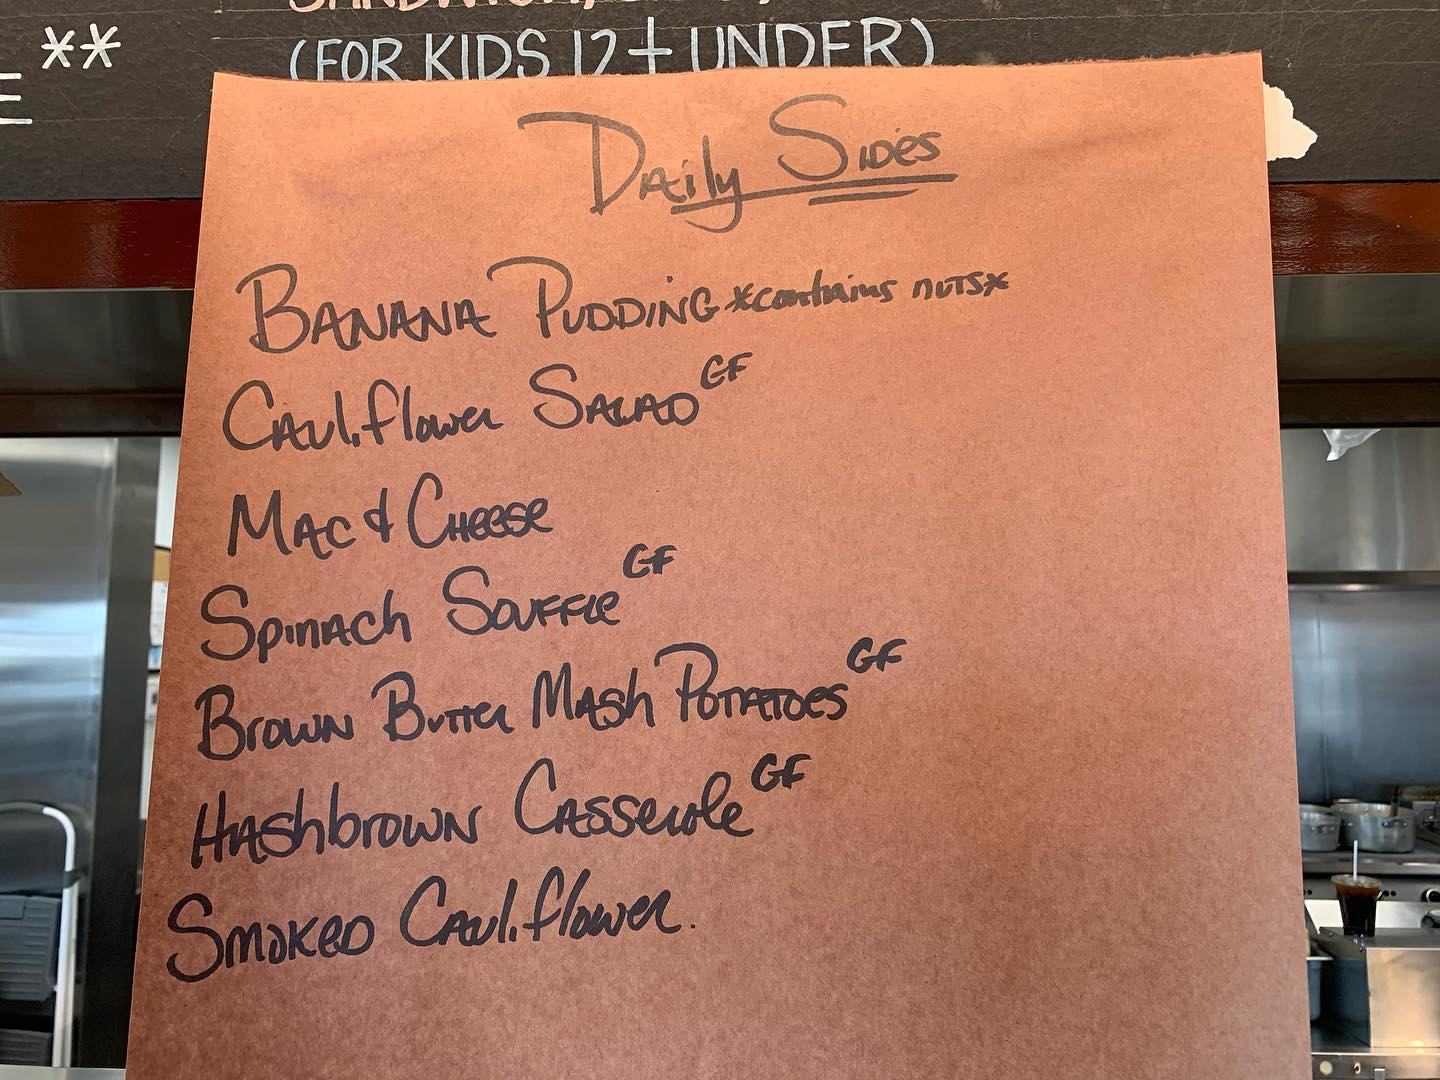 **
(FOR KIDS 12 + UNDER)
E
Daily Sides
BANANA PUDDING *contains nuts*
Cauliflower Salad GF
Mac & Cheese
Spinach Souffle GF
Brown Butter Mash Potatoes GF
Hashbrown Casserole GF
Smoked Cauliflower.